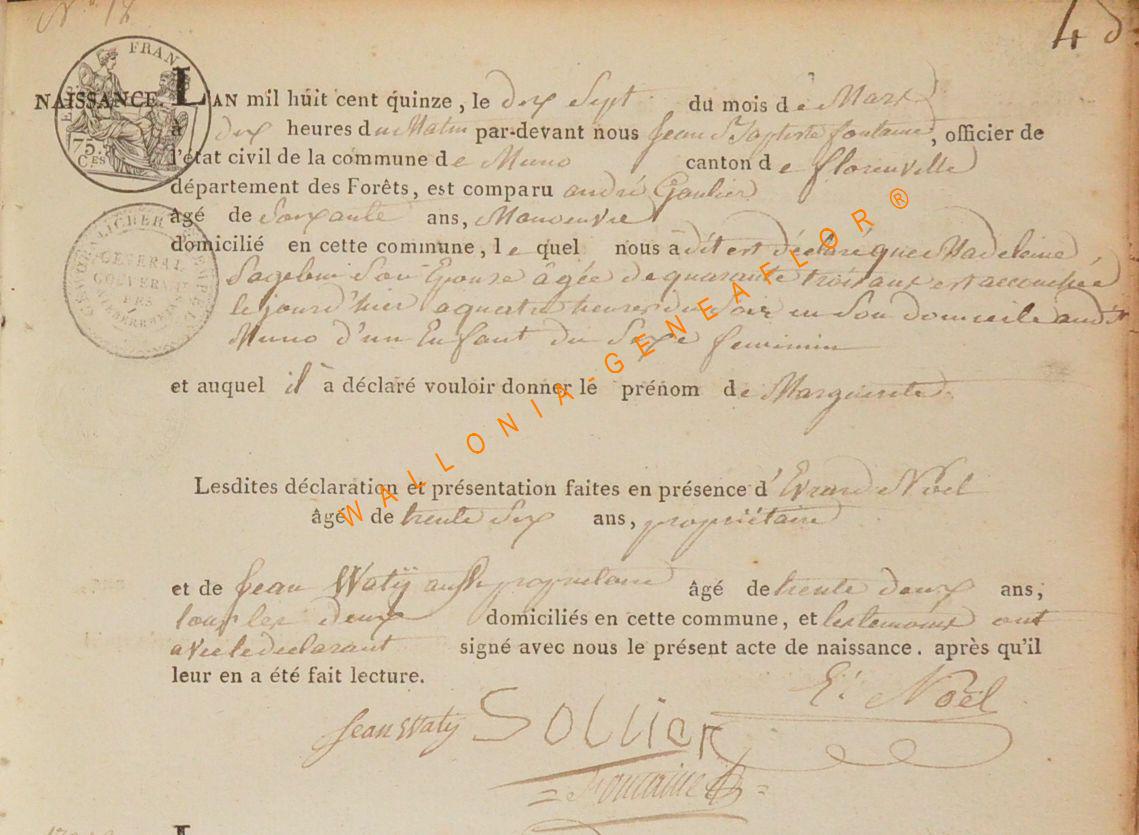 N.° 18
48
FRAN
75.
C.ES
NAISSANCE. L'AN mil huit cent quinze, le dix Sept du mois de Mars
à dix heures du Matin par-devant nous Jean Bte Baptiste fontaine, officier de
l'état civil de la commune de Muno canton de florenville
département des Forêts, est comparu andré Gaulier
âgé de Soixante ans, Manoeuvre
domicilié en cette commune, le quel nous a dit et déclaré que Madelaine
son Epouse âgée de quarante trois ans est accouchée
le jourd'hier a quatre heures du Soir en Son domicile audit
Muno d'un Enfant du Sexe feminin
et auquel il a déclaré vouloir donner le prénom de Marguerite.
GENERAL
GOUVERN
Lesdites déclaration et présentation faites en présence d'Evrard Noel
âgé de trente Six ans, propriétaire
et de Jean Watÿ aussi proprietaire âgé de trente deux ans;
tous les deux domiciliés en cette commune, et les temoins ont
avec le declarant signé avec nous le présent acte de naissance. après qu'il
leur en a été fait lecture.
E. Noël
Jean Waty SOLLIER
Fontaine
WALLONIA-GENEAFLOR ®